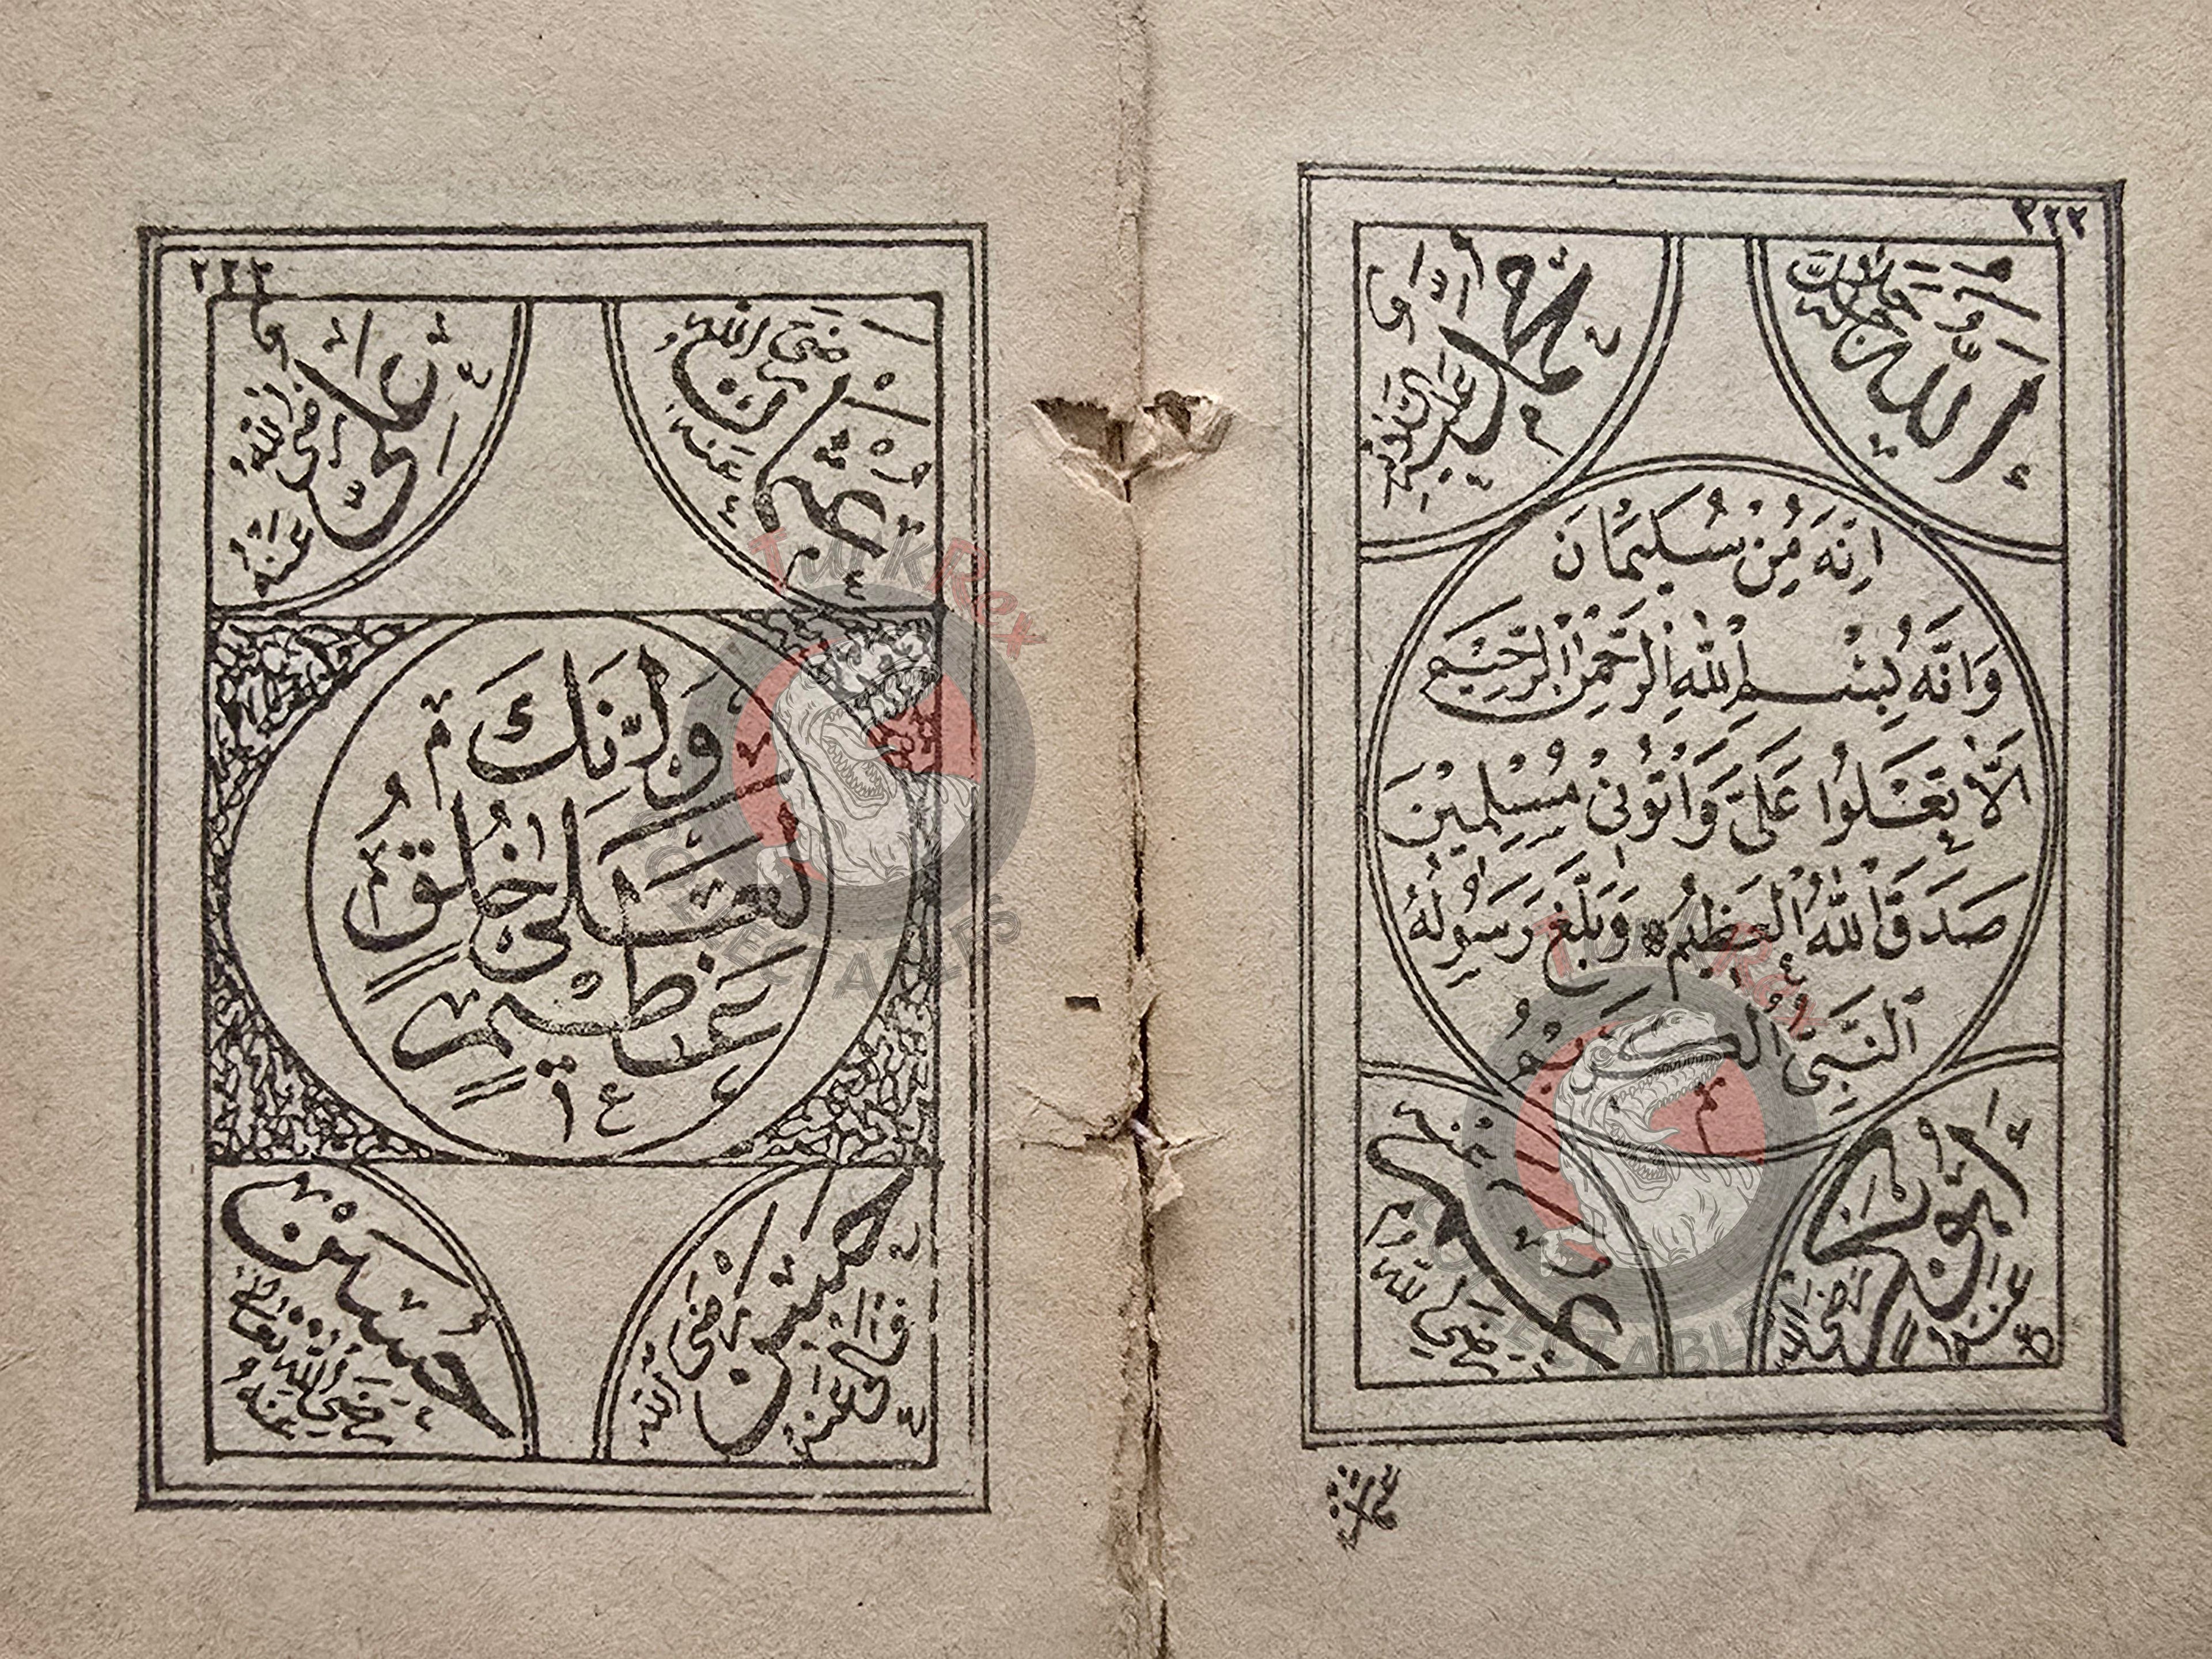 ٢٢٢
الله جل جلاله
محمد عليه السلام
اِنَّهُ مِنْ سُلَيْمَانَ
وَاِنَّهُ بِسْمِ اللّٰهِ الرَّحْمٰنِ الرَّحِيمِ
اَلَّا تَعْلُوا عَلَىَّ وَأْتُونِى مُسْلِمِينَ
صَدَقَ اللّٰهُ الْعَظِيمُ وَبَلَّغَ رَسُولُهُ
النَّبِىُّ الْكَرِيمُ
ابو بكر رضى الله عنه
عمر رضى الله عنه
٢٢٣
عثمان رضى الله عنه
على رضى الله عنه
وَاِنَّكَ
لَعَلٰى خُلُقٍ
عَظِيمٍ
حسين رضى الله تعالى عنه
حسن رضى الله تعالى عنه
TurkRex
COLLECTABLES
TurkRex
COLLECTABLES